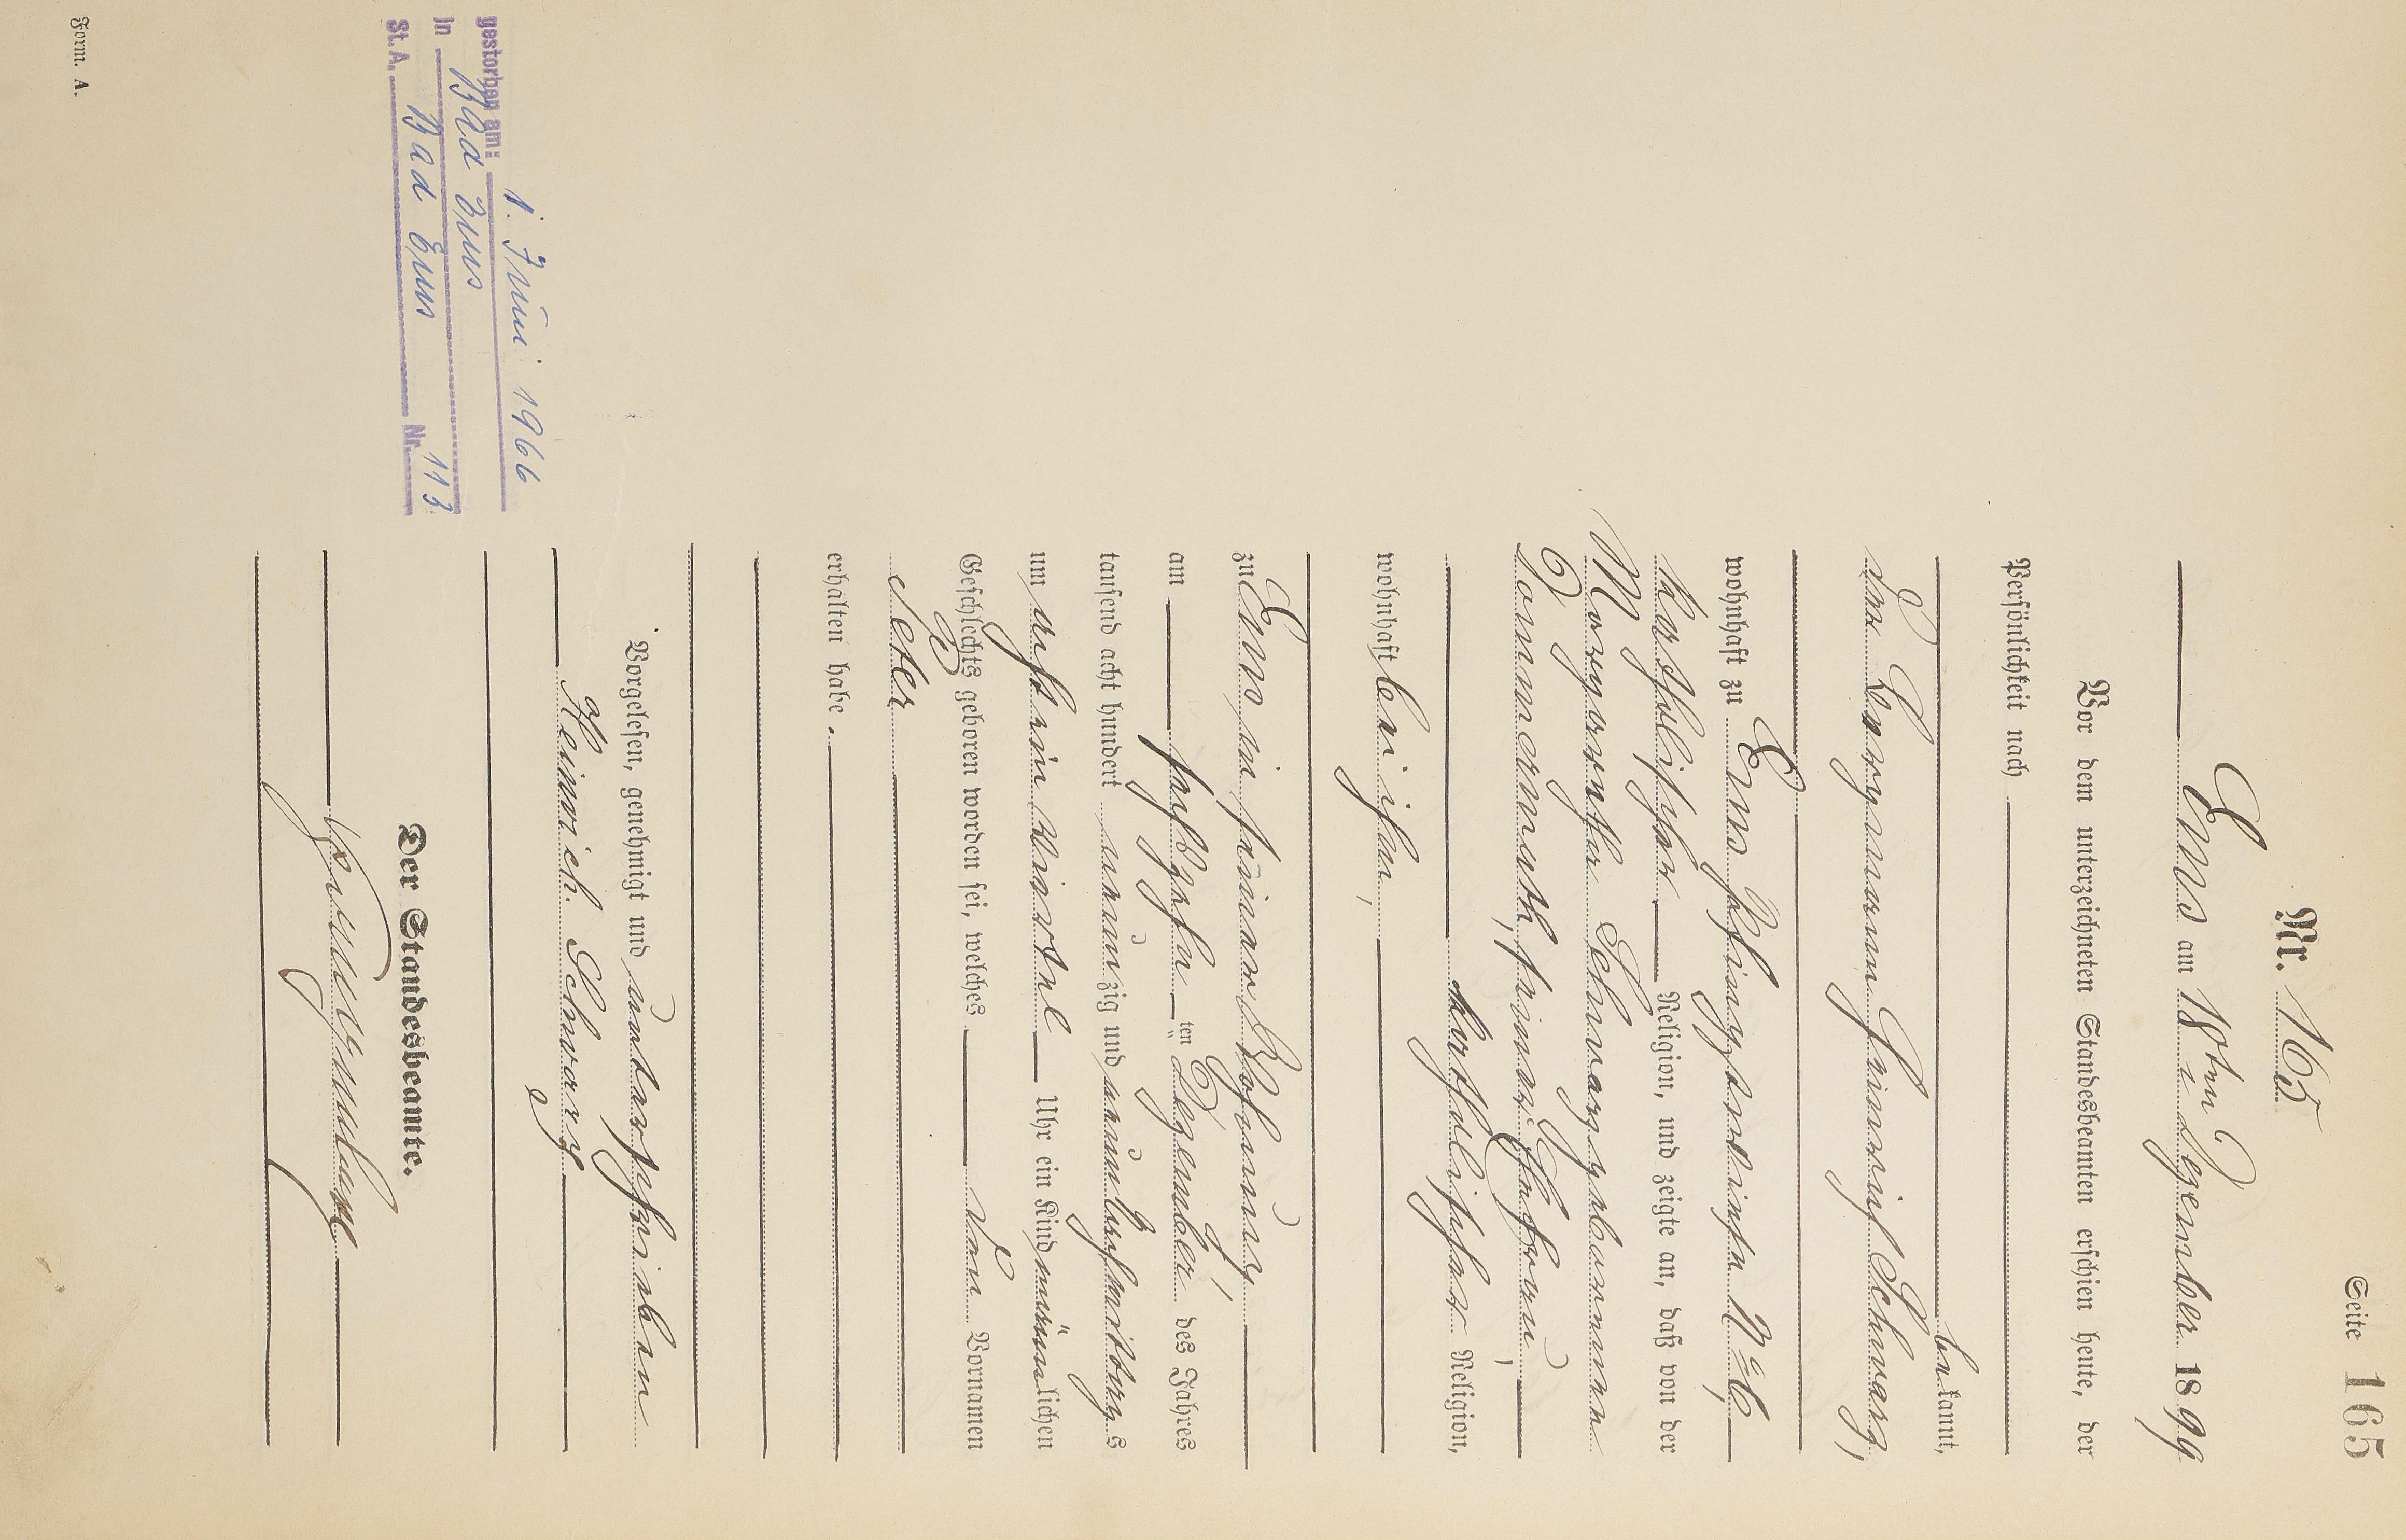 Seite 165
Nr. 165
Ems am 18ten Dezember 1899
Vor dem unterzeichneten Standesbeamten erschien heute, der
Persönlichkeit nach
bekannt,
der Bergmann Heinrich Schwarz,
wohnhaft zu Ems Pfingstwiese No 6,
katholischer Religion, und zeigte an, daß von der
Margarethe Schwarz geborenen
Dommermuth, seiner Ehefrau,
katholischer Religion,
wohnhaft bei ihm,
zu Ems in seiner Wohnung
am sechszehnten Dezember des Jahres
tausend acht hundert neunzig und neun Nachmittags
um acht ein viertel Uhr ein Kind männlichen
Geschlechts geboren worden sei, welches den Vornamen
Peter
erhalten habe.
Vorgelesen, genehmigt und unterschrieben
Heinrich Schwarz
Der Standesbeamte.
gestorben am: 1. Juni 1966
in Bad Ems
St. A. Bad Ems Nr. 113
Form. A.